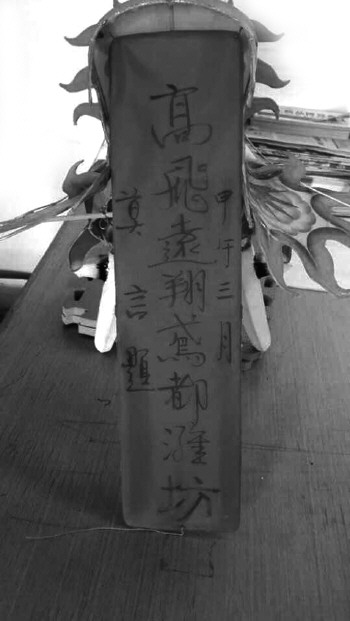 甲午三月
高飛遠翔鳶都濰坊
莫言題